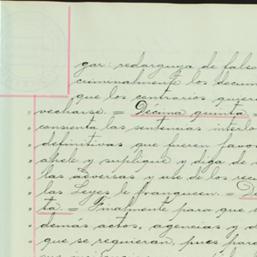 gar: redarguya de falso
criminalmente los docum
que los contrarios quiera
vecharse. = Décima quinta =
consienta las sentencias interlo
definitivas que fueren favor
apele y suplique y diga de
las adversas y use de los recu
las Leyes le franqueen. = De
ta. = Finalmente para que
demás actos, agencias y d
que se requieran, pues para